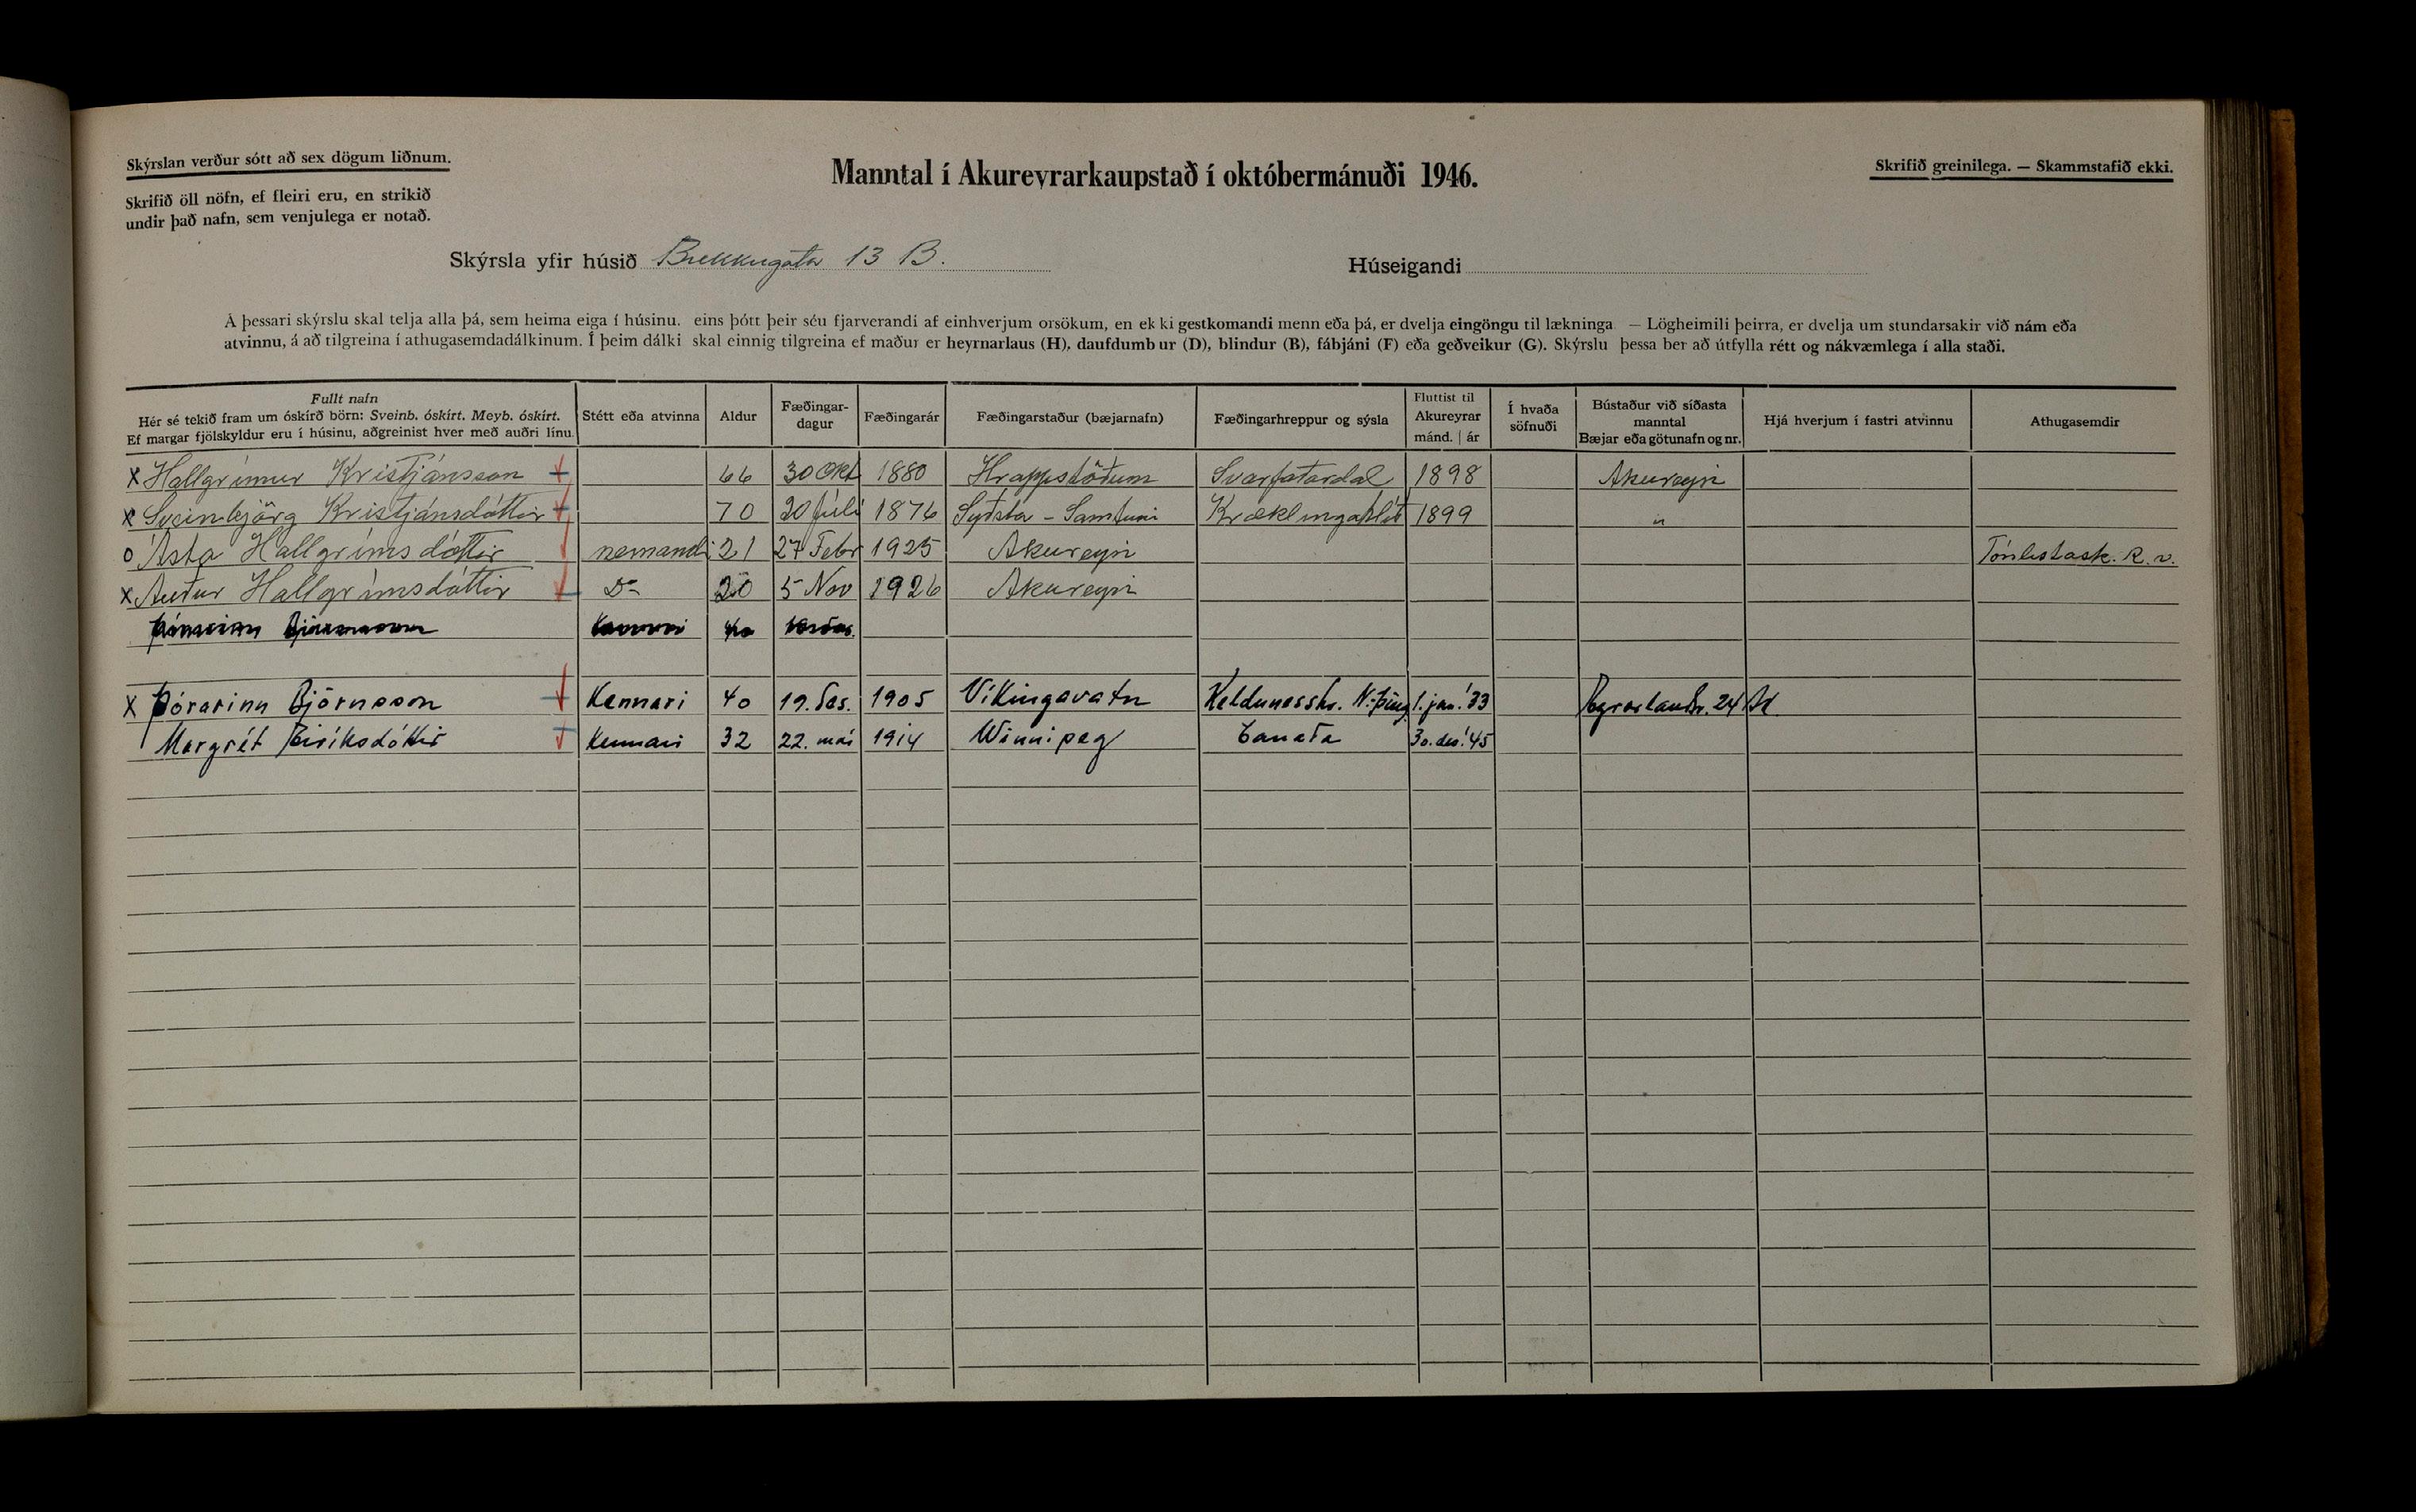 Skýrslan verður sótt að sex dögum liðnum.
Skrifið öll nöfn, ef fleiri eru, en strikið
undir það nafn, sem venjulega er notað.
Manntal í Akureyrarkaupstað í októbermánuði 1946.
Skrifið greinilega. — Skammstafið ekki.
Skýrsla yfir húsið Brekkugata 13 B.
Húseigandi
Á þessari skýrslu skal telja alla þá, sem heima eiga í húsinu, eins þótt þeir séu fjarverandi af einhverjum orsökum, en ekki gestkomandi menn eða þá, er dvelja eingöngu til lækninga — Lögheimili þeirra, er dvelja um stundarsakir við nám eða
atvinnu, á að tilgreina í athugasemdadálkinum. Í þeim dálki skal einnig tilgreina ef maður er heyrnarlaus (H), daufdumbur (D), blindur (B), fábjáni (F) eða geðveikur (G). Skýrslu þessa ber að útfylla rétt og nákvæmlega í alla staði.
Fullt nafn
Hér sé tekið fram um óskírð börn: Sveinb. óskírt. Meyb. óskírt.
Ef margar fjölskyldur eru í húsinu, aðgreinist hver með auðri línu.
Stétt eða atvinna
Aldur
Fæðingar-
dagur
Fæðingarár
Fæðingarstaður (bæjarnafn)
Fæðingarhreppur og sýsla
Fluttist til
Akureyrar
mánd. | ár
Í hvaða
söfnuði
Bústaður við síðasta
manntal
Bæjar eða götunafn og nr.
Hjá hverjum í fastri atvinnu
Athugasemdir
x Hallgrímur Kristjánsson 66 30 Okt 1880 Hrappstöðum Svarfaðardal 1898 Akureyri
x Sveinbjörg Kristjánsdóttir 70 20 Júlí 1876 Syðsta - Samtuni Kræklingahlíð 1899 "
o Ásta Hallgrímsdóttir nemandi 21 27 Febr 1925 Akureyri Tónlistask. R.v.
x Auður Hallgrímsdóttir Do 20 5 Nov 1926 Akureyri
Þórarinn Björnsson Kennari 40
x Þórarinn Björnsson Kennari 40 19. des. 1905 Víkingavatn Keldunesshr. N-Þing 1. jan. '33 24 Ak
Margrét Eiríksdóttir Kennari 32 22. maí 1914 Winnipeg Canada 30. des. '45